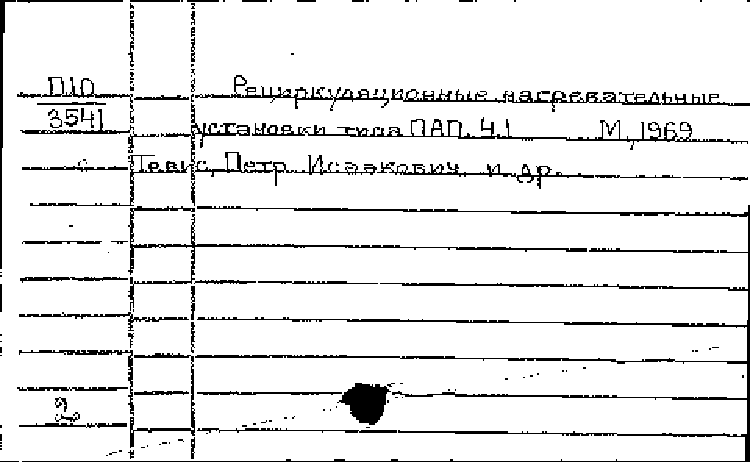 П10 Рециркуляционные нагревательные
3541 установки типа ПАП. Ч.1 М, 1969
Тевис, Петр Исаакович и др.
2